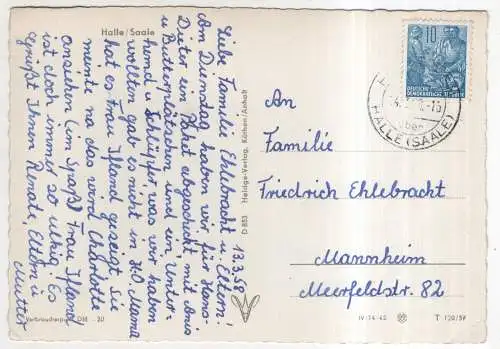 Halle/Saale
13.3.58
Liebe Familie Ehlebracht u. Eltern!
Am Dienstag haben wir für Hans-
Dieter ein Paket abgeschickt mit Anis
u. Butterplätzchen und ein Unter-
hemd u. Schlüpfer, was wir haben
wollten gab es nicht in H.O. Mama
hat es Frau Ifland gezeigt sie
meinte na das wird Charlotte
anziehen (im Spaß) Frau Ifland
ist doch immer so ulkig. Es
grüßt Ihnen Renate, Eltern u.
Mutter
Verbraucherpreis DM -.20
D 853 Heldge-Verlag, Köthen/Anhalt
10
DEUTSCHE
DEMOKRATISCHE REPUBLIK
HALLE (SAALE)
An
Familie
Friedrich Ehlebracht
Mannheim
Meerfeldstr. 82
IV-14-42
T 120/57